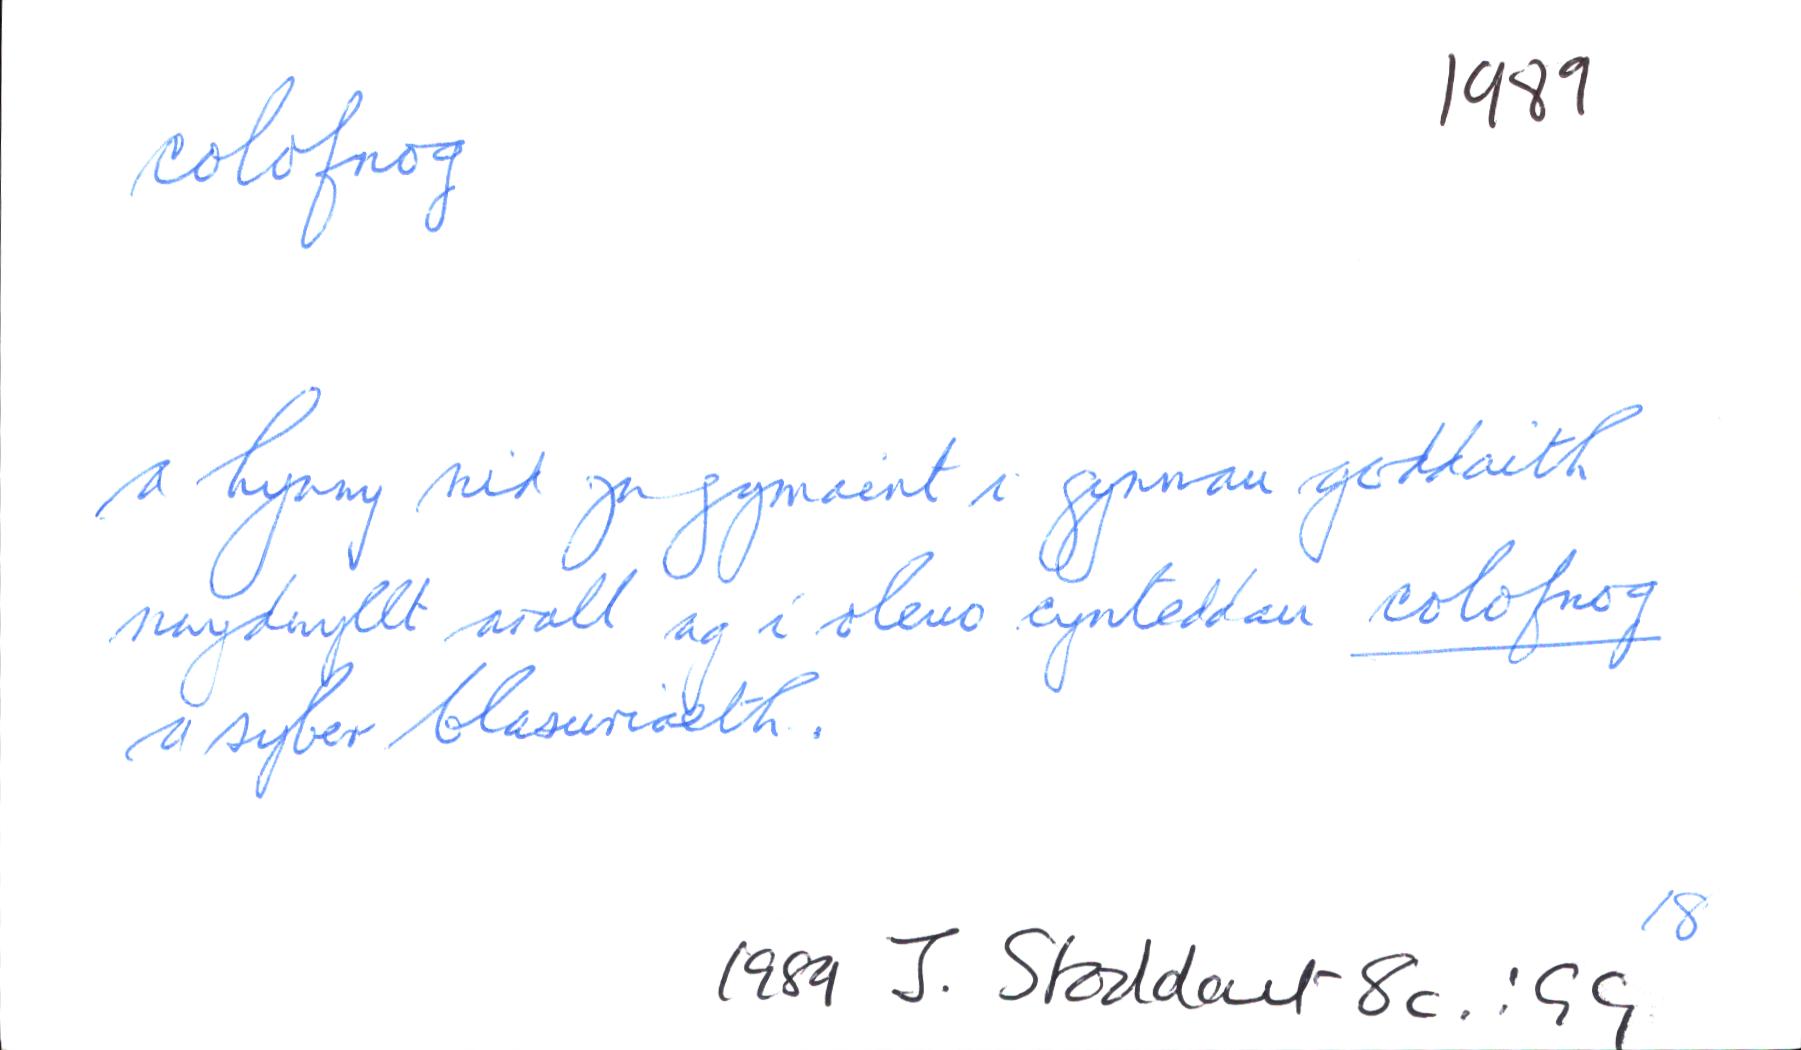 1989
colofnog
a hynny nid yn gymaint i gynnau goddaith
nwydwyllt arall ag i oleuo cynteddau colofnog
a syber blasuriaeth.
18
1989 J. Stoddart 8c. : GG